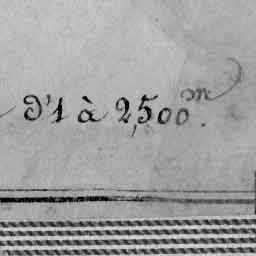 d'1 à 2,500m.